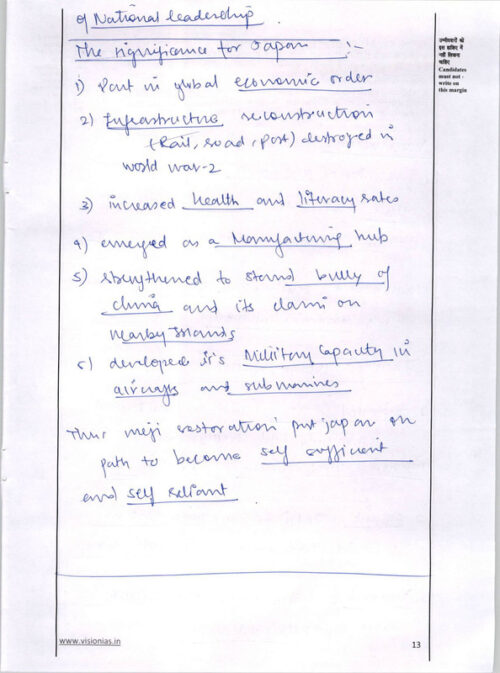 of National leadership
The significance for Japan :-
1) Part in global economic order
2) Infrastructure reconstruction
(Rail, road, post) destroyed in
world war-2
3) increased health and literacy rates
4) emerged as a Manufacturing hub
5) strengthened to stand bully of
china and its claim on
nearby Islands
6) developed it's Military Capacity in
aircrafts and submarines
Thus meji restoration put japan on
path to become self sufficient
and self reliant
उम्मीदवारों को
इस हाशिए में
नहीं लिखना
चाहिए
Candidates
must not
write on
this margin
www.visionias.in
13